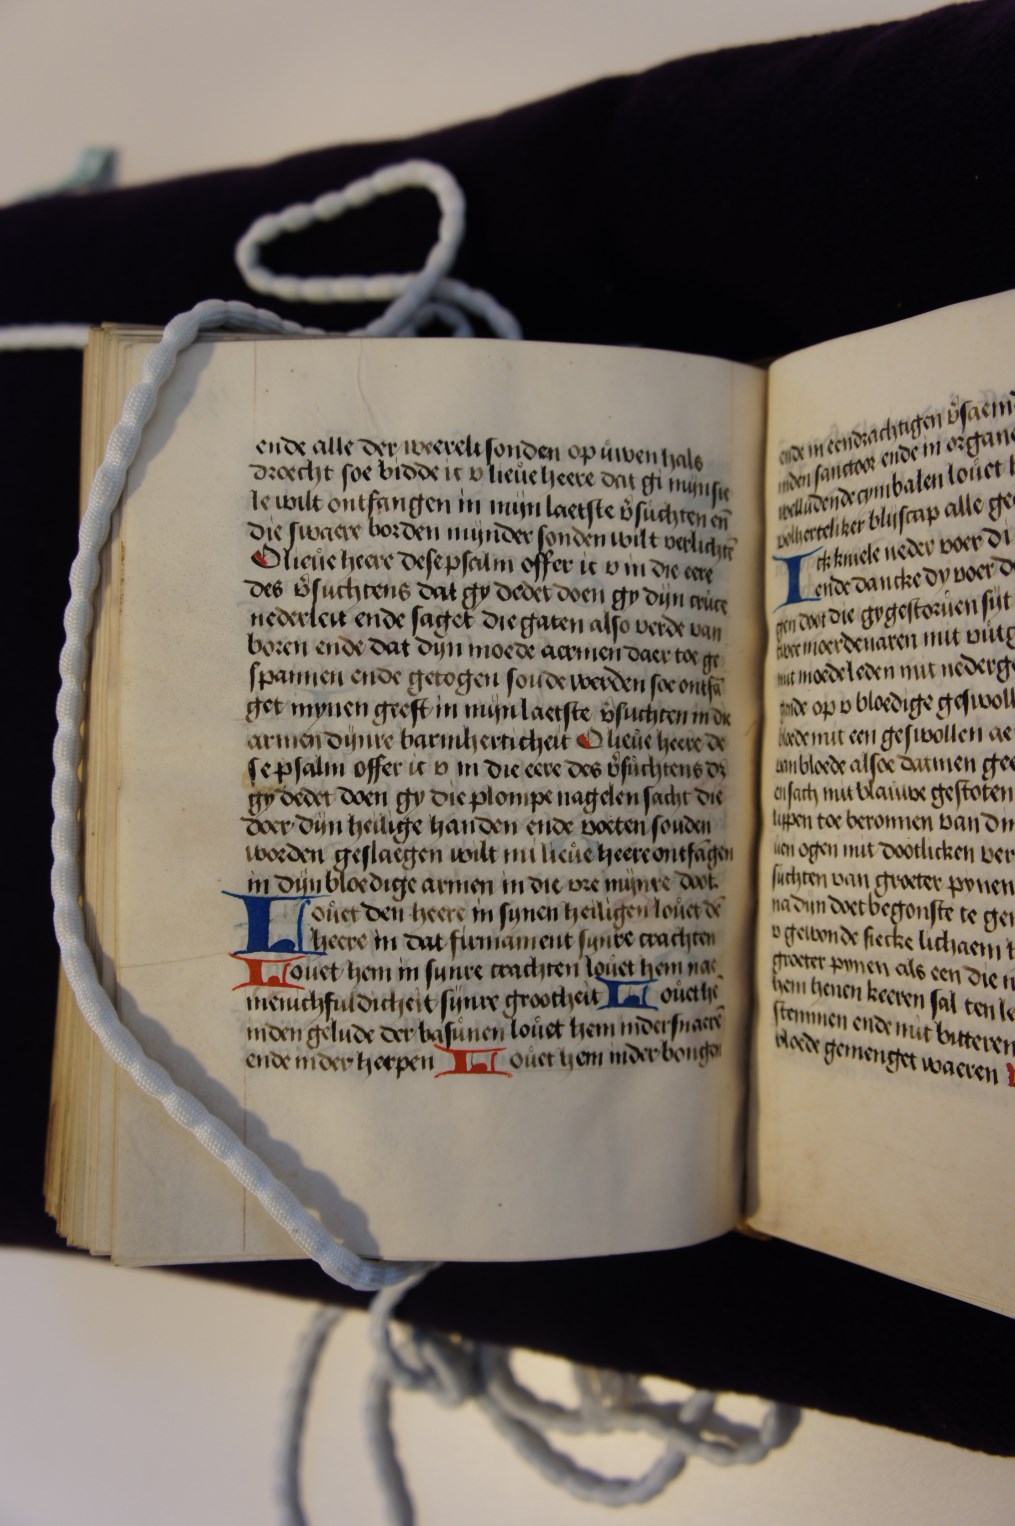 ende alle der weerelt sonden op uwen hals
droecht soe bidde ic v lieue heere dat gi mijn sie
le wilt ontfangen in mijn laetste v̄suchten en̄
die swaere borden mijnder sonden wilt verlichtē
O lieue heere dese psalm offer ic v in die eere
des v̄suchtens dat gy dedet doen gy dijn cruce
nederleit ende saget die gaten also verde van
boren ende dat dijn moede aermen daer toe ge
spannen ende getogen soude werden soe ontfā
get mynen geest in mijn laetste v̄suchten in die
armen dijnre barmherticheit O lieue heere de
se psalm offer ic v in die eere des v̄suchtens
gy dedet doen gy die plompe nagelen sacht die
doer dijn heilige handen ende voeten souden
worden geslaegen wilt mi lieue heere ontfāgen
in dijn bloedige armen in die vre mijnre doot.
Louet den heere in synen heiligen louet dē
heere in dat firmament synre crachten
Louet hem in synre crachten louet hem nae
menichfuldicheit synre grootheit Louet hē
inden gelude der basunen louet hem inder snaerē
ende inder herpen Louet hem inder bonge
ende in eendrachtigen
inden sanctoor ende in organ
welludende cymbalen louet
blijscap alle
Ick kniele neder voer di
ende dancke dy voer
doot die gy gestoruen sijt
moerdenaren mit
mit moede leden mit nederge
op v bloedige geswoll
mit een geswollen
van bloede alsoe datmen gee
mit blauwe gestoten
lippen toe beronnen van
ogen mit dootlicken ver
suchten van groeter pynen
na dijn doet begonste te
v gewonde siecke lichaem
groeter pynen als een die
hem henen keeren sal ten
stemmen ende mit bitteren
bloede gemenget waeren